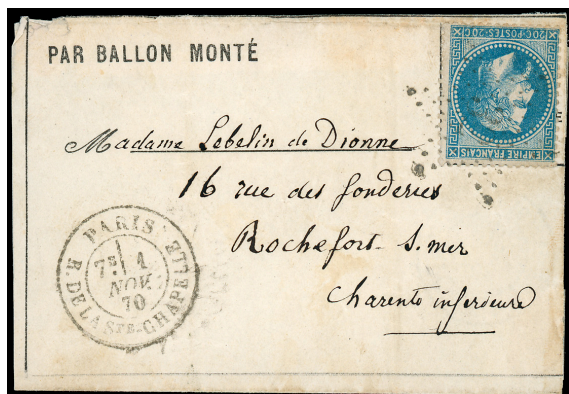 PAR BALLON MONTÉ
20C·POSTES·20C
EMPIRE FRANÇAIS
Madame Lebelin de Dionne
16 rue des fonderies
Rochefort s. mer
Charente inferieure
PARIS
R. DE LA STE-CHAPELLE
7E 1
NOV.
70